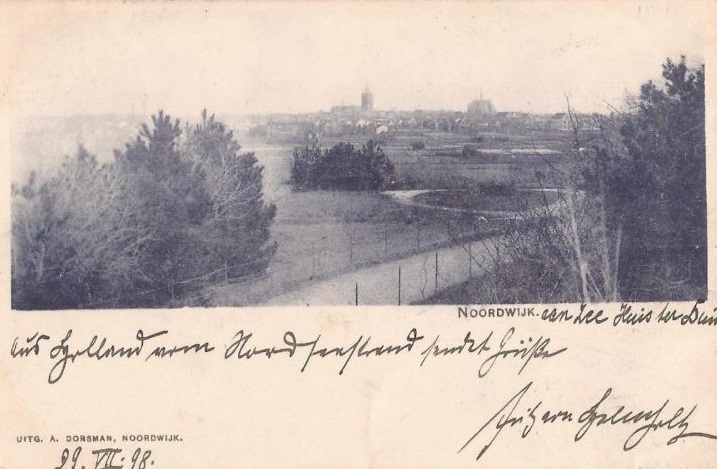 NOORDWIJK. aan Zee Huis ter Duin
Aus Holland vom Nordseestrand sendet Grüße
Fritz von Helmholtz
UITG. A. DORSMAN, NOORDWIJK.
29. VII. 98.